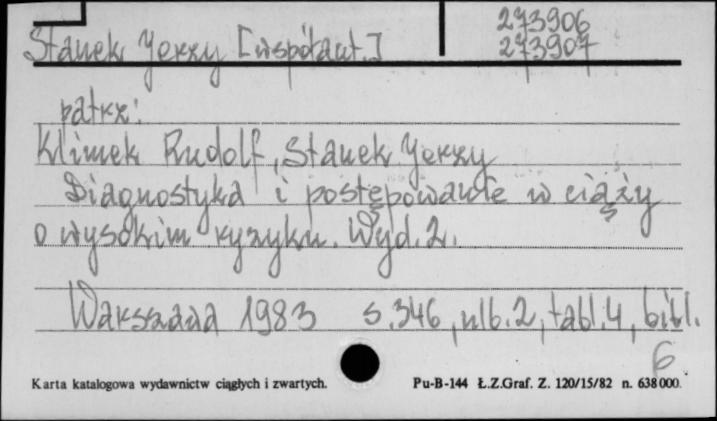 273906
Stanek Jerzy [współaut.] 273907
patrz:
Klimek Rudolf, Stanek Jerzy
Diagnostyka i postępowanie w ciąży
o wysokim ryzyku. Wyd. 2.
Warszawa 1983 s. 346, nlb. 2, tabl. 4, bibl.
6
Karta katalogowa wydawnictw ciągłych i zwartych. Pu-B-144 Ł.Z.Graf. Z. 120/15/82 n. 638000.